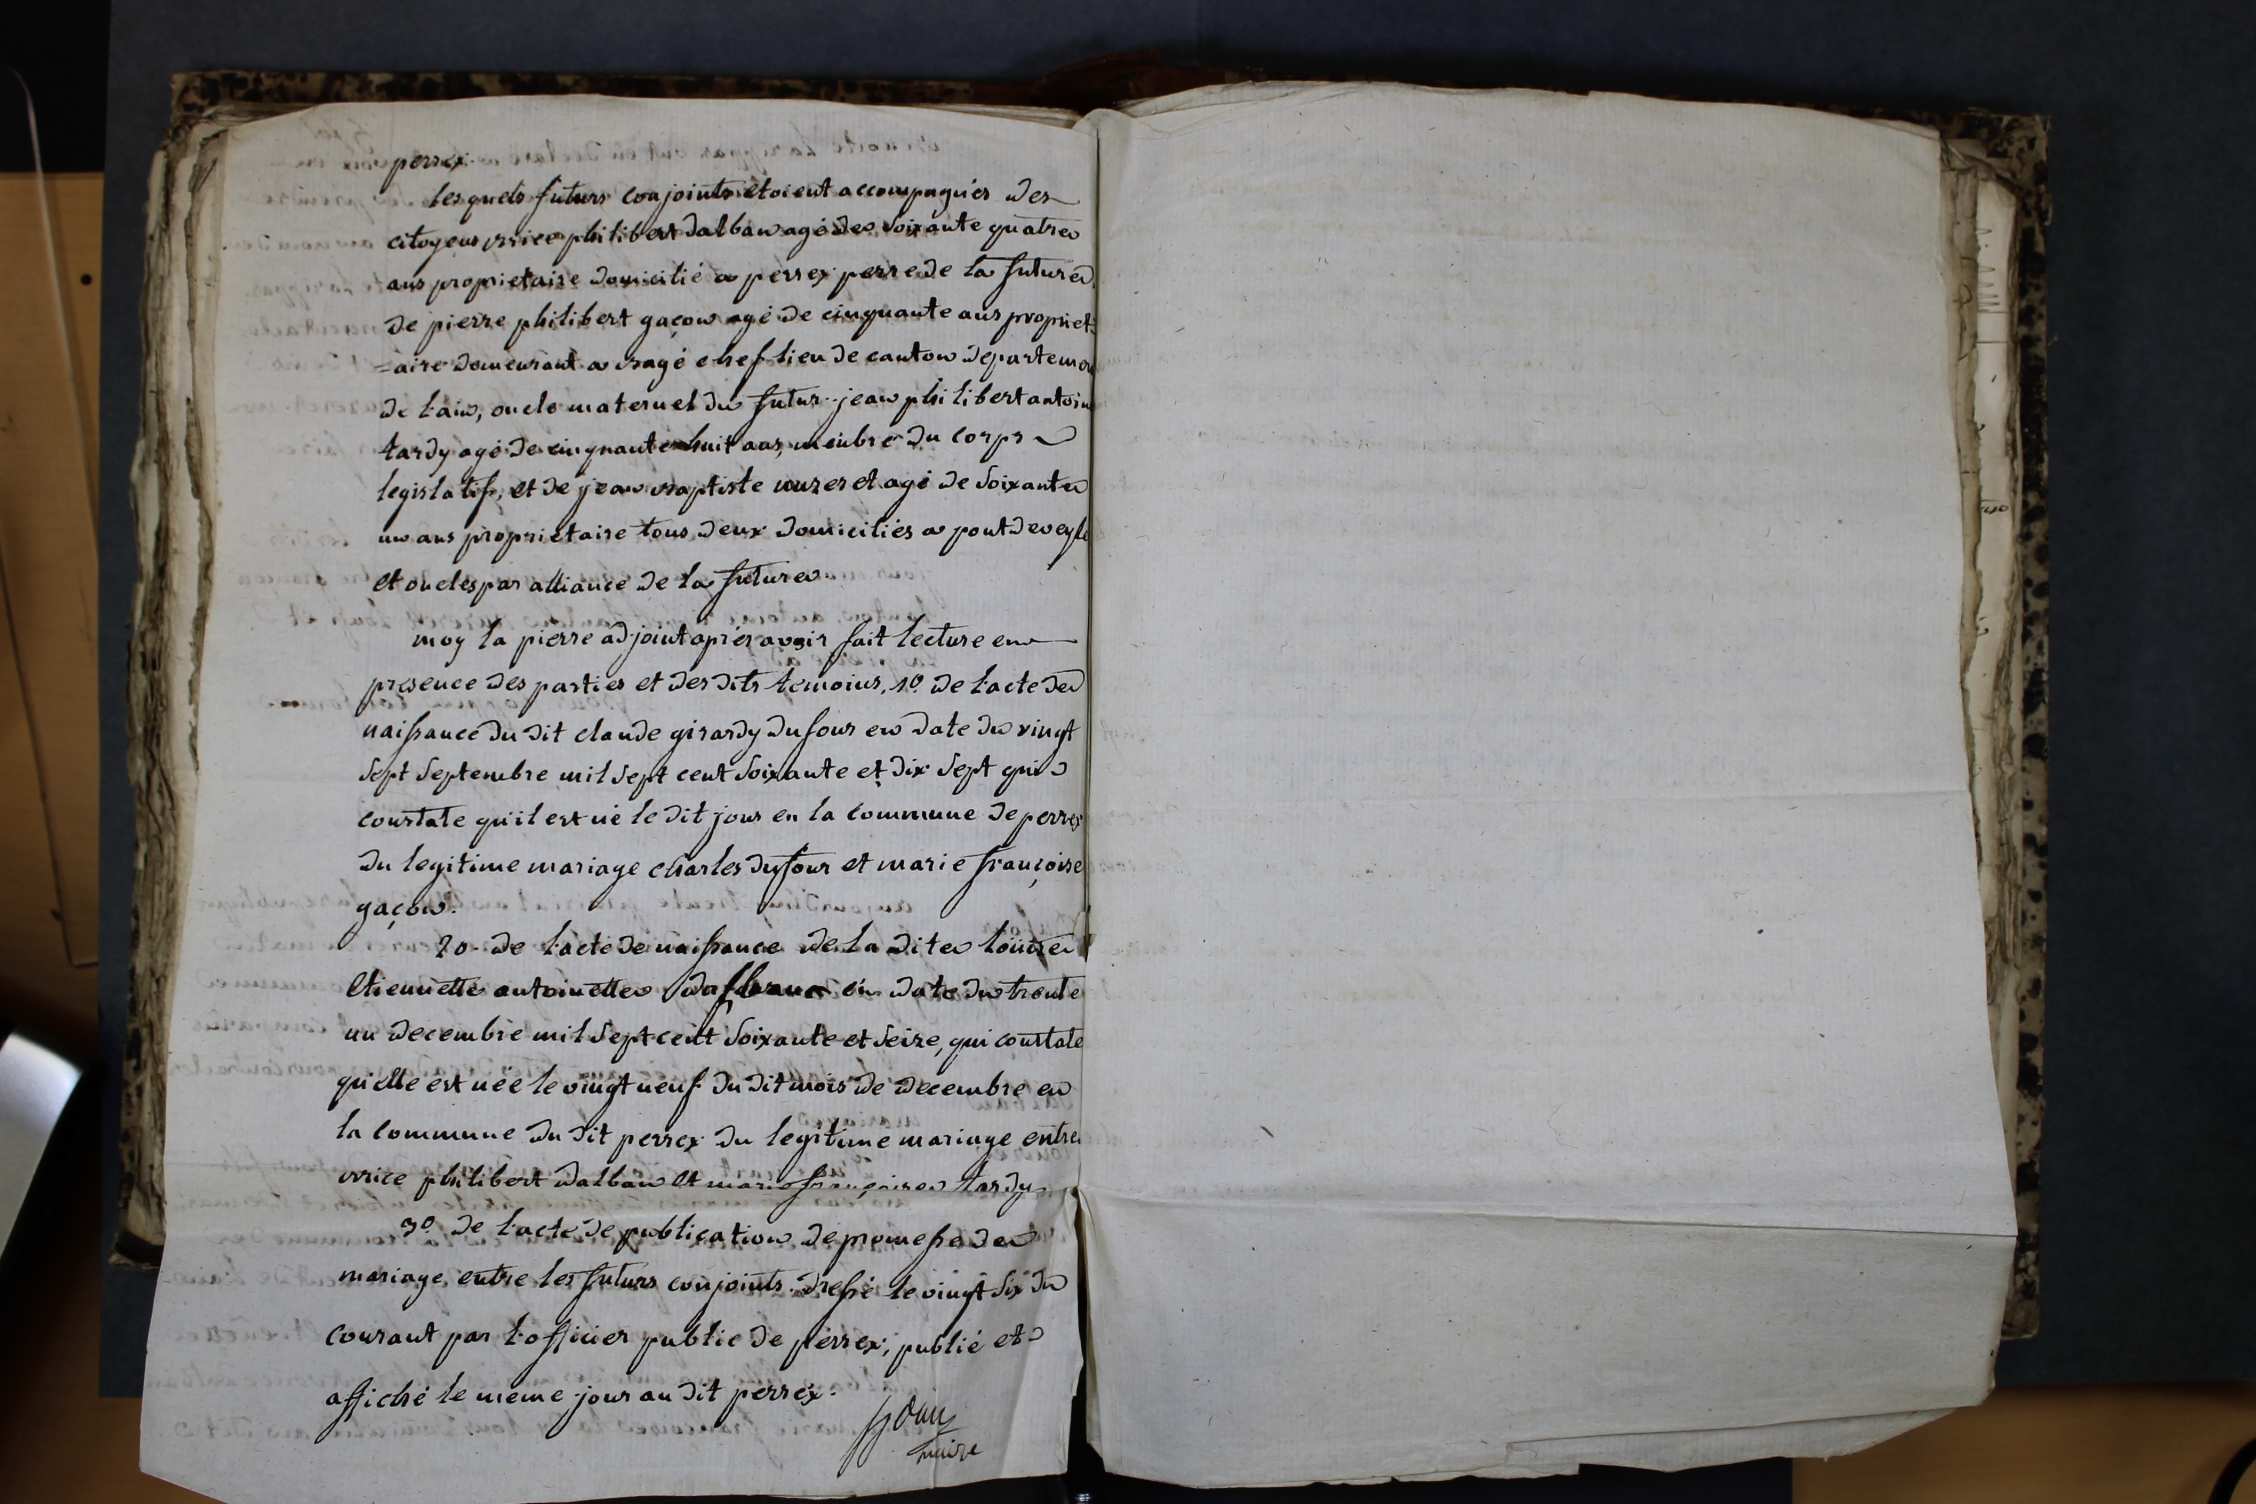 perrex.
lesquels futurs conjoints etoient accompagnés des
citoyens vrice philibert dalban agé de soixante quatre
ans proprietaire domicilié a perrex perre de la future
de pierre philibert gaçon agé de cinquante ans propriet
=aire demeurant a bagé chef lieu de canton departemen
de l'ain, oncle maternel du futur. jean philibert antoin
tardy agé de cinquante huit ans, menbre du corps
legislatif, et de jean baptiste agé de soixante
un ans proprietaire tous deux domiciliés a pont de veyle
et oncles par alliance de la future
moy la pierre adjoint aprés avoir fait lecture en
presence des parties et des dits temoins, 1o. de l'acte de
naissance du dit claude girardy dufour en date du vingt
sept septembre mil sept cent soixante et dix sept qui
constate qu'il est né le dit jour en la commune de perrex
du legitime mariage charles dufour et marie françoise
gaçon.
2o. de l'acte de naissance de la dite louise
Etiennette antoinette en date du trente
un decembre mil sept cent soixante et seize, qui constate
qu'elle est née le vingt neuf du dit mois de decembre en
la commune du dit perrex du legitime mariage entre
vrice philibert dalban et marie françoise tardy
3o. de l'acte de publication de promesse de
mariage, entre les futurs conjoints dressé le vingt six du
courant par l'officier public de perrex, publié et
affiché le meme jour au dit perrex.
maire